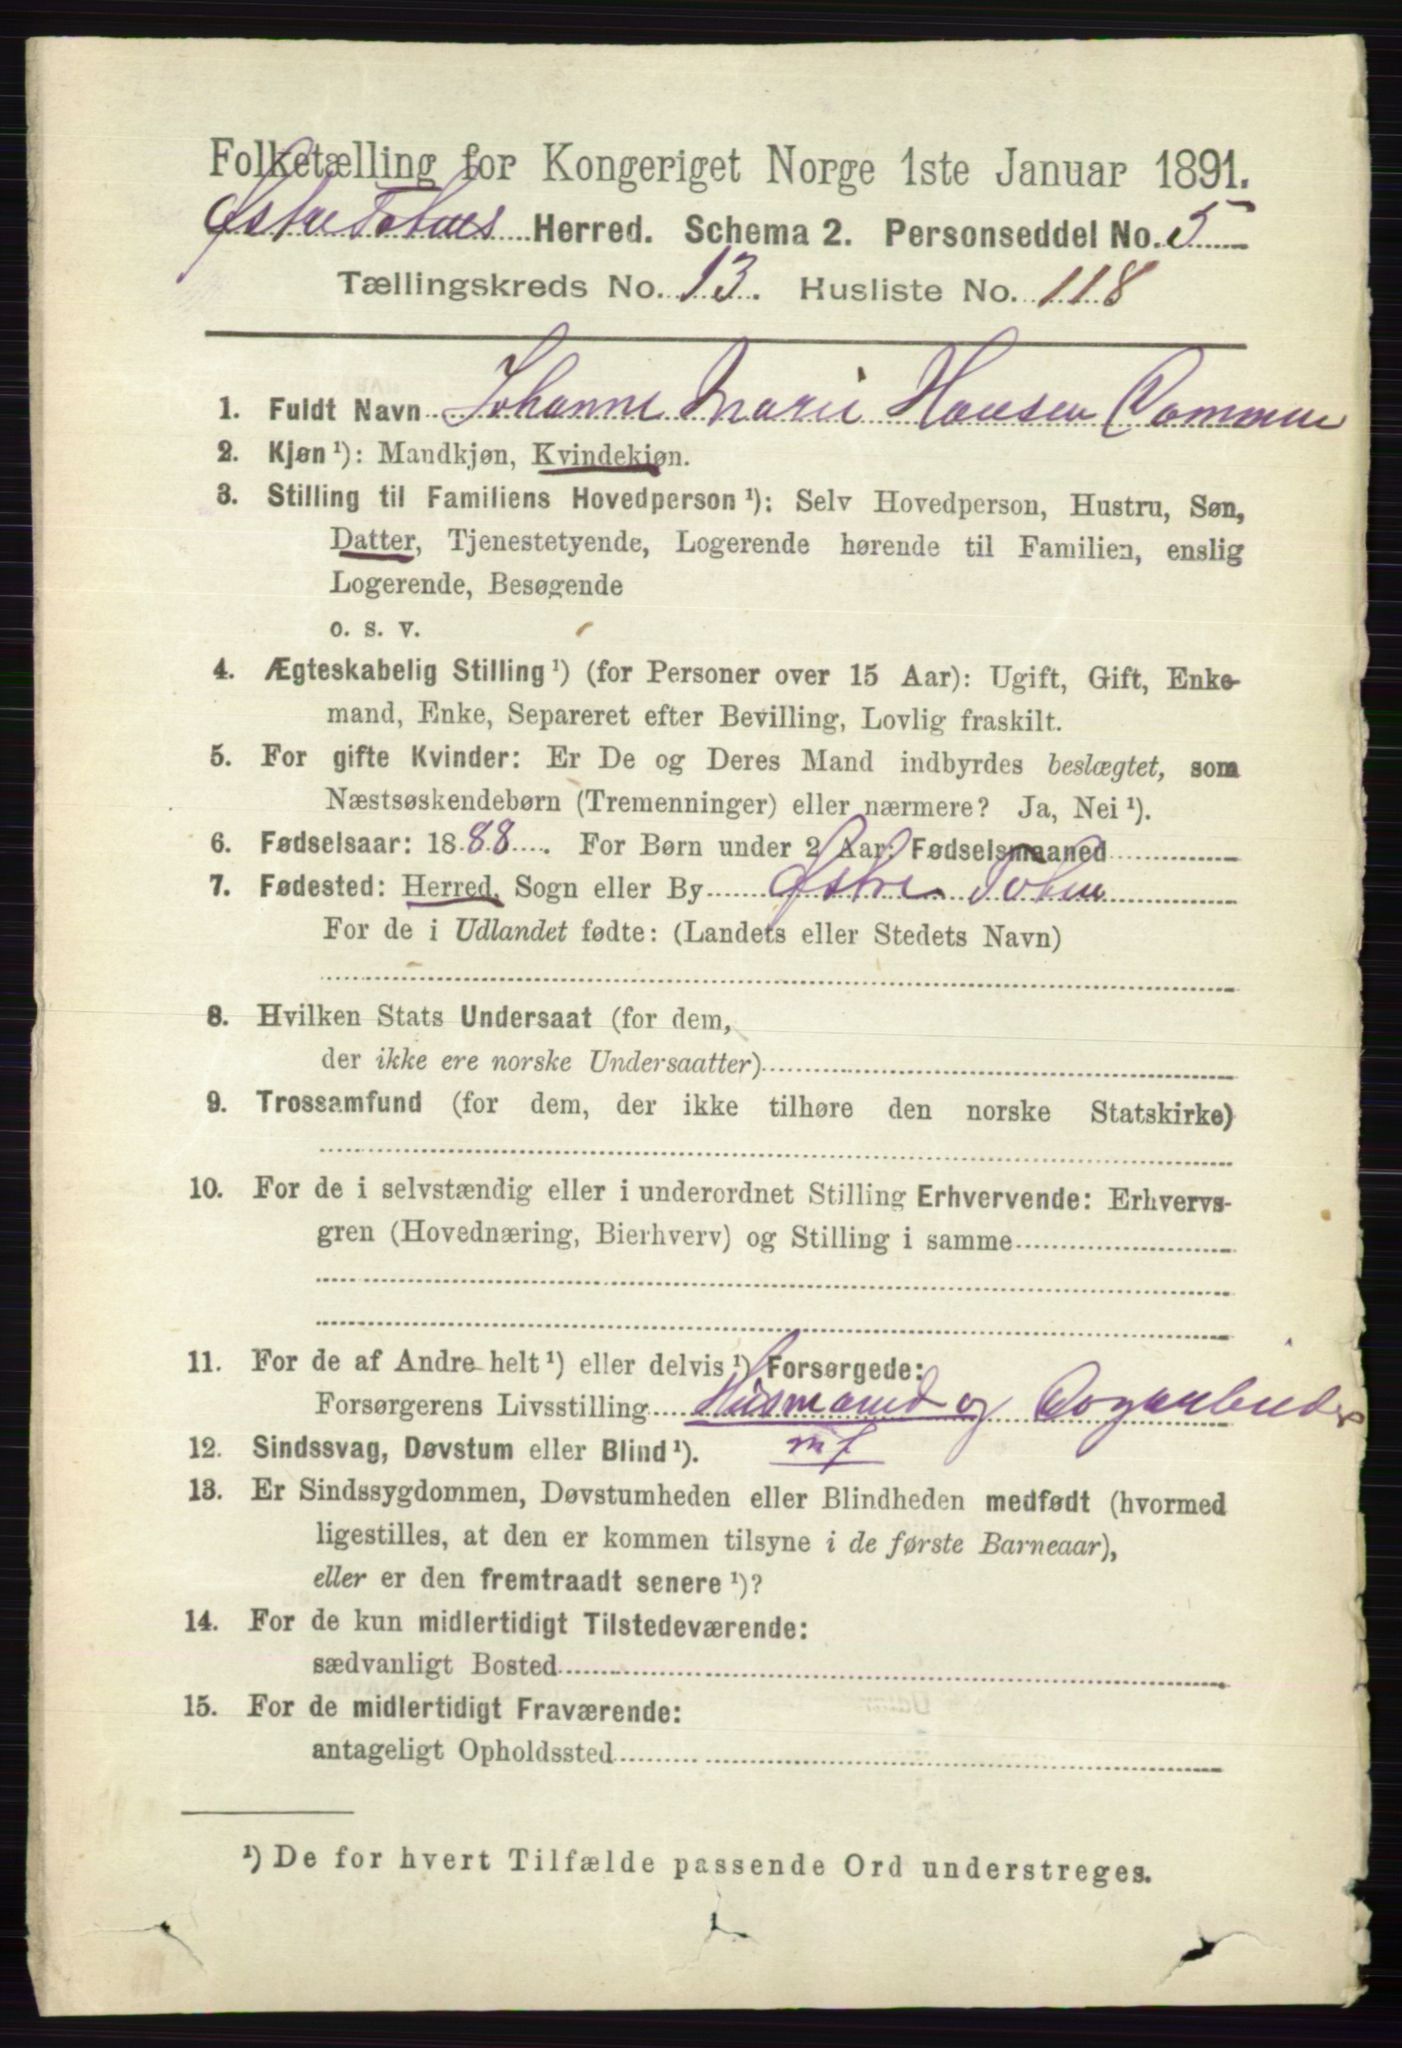 Folketælling for Kongeriget Norge 1ste Januar 1891.
Østre Totens Herred. Schema 2. Personseddel No. 5
Tællingskreds No. 13. Husliste No. 118
1. Fuldt Navn Johanne Marie Hansen
2. Kjøn ¹): Mandkjøn, Kvindekjøn.
3. Stilling til Familiens Hovedperson ¹): Selv Hovedperson, Hustru, Søn,
Datter, Tjenestetyende, Logerende hørende til Familien, enslig
Logerende, Besøgende
o. s. v.
4. Ægteskabelig Stilling ¹) (for Personer over 15 Aar): Ugift, Gift, Enke-
mand, Enke, Separeret efter Bevilling, Lovlig fraskilt.
5. For gifte Kvinder: Er De og Deres Mand indbyrdes beslægtet, som
Næstsøskendebørn (Tremenninger) eller nærmere? Ja, Nei ¹).
6. Fødselsaar: 1888. For Børn under 2 Aar: Fødselsmaaned
7. Fødested: Herred, Sogn eller By Østre Toten
For de i Udlandet fødte: (Landets eller Stedets Navn)
8. Hvilken Stats Undersaat (for dem,
der ikke ere norske Undersaatter)
9. Trossamfund (for dem, der ikke tilhøre den norske Statskirke)
10. For de i selvstændig eller i underordnet Stilling Erhvervende: Erhvervs-
gren (Hovednæring, Bierhverv) og Stilling i samme
11. For de af Andre helt ¹) eller delvis ¹) Forsørgede:
Forsørgerens Livsstilling Husmand og
12. Sindssvag, Døvstum eller Blind ¹).
13. Er Sindssygdommen, Døvstumheden eller Blindheden medfødt (hvormed
ligestilles, at den er kommen tilsyne i de første Barneaar),
eller er den fremtraadt senere ¹)?
14. For de kun midlertidigt Tilstedeværende:
sædvanligt Bosted
15. For de midlertidigt Fraværende:
antageligt Opholdssted
¹) De for hvert Tilfælde passende Ord understreges.